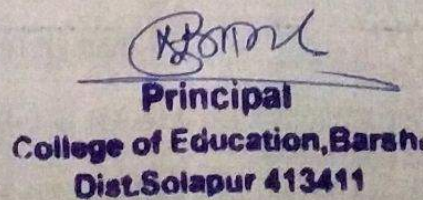 Principal
College of Education,Barsh
Dist.Solapur 413411